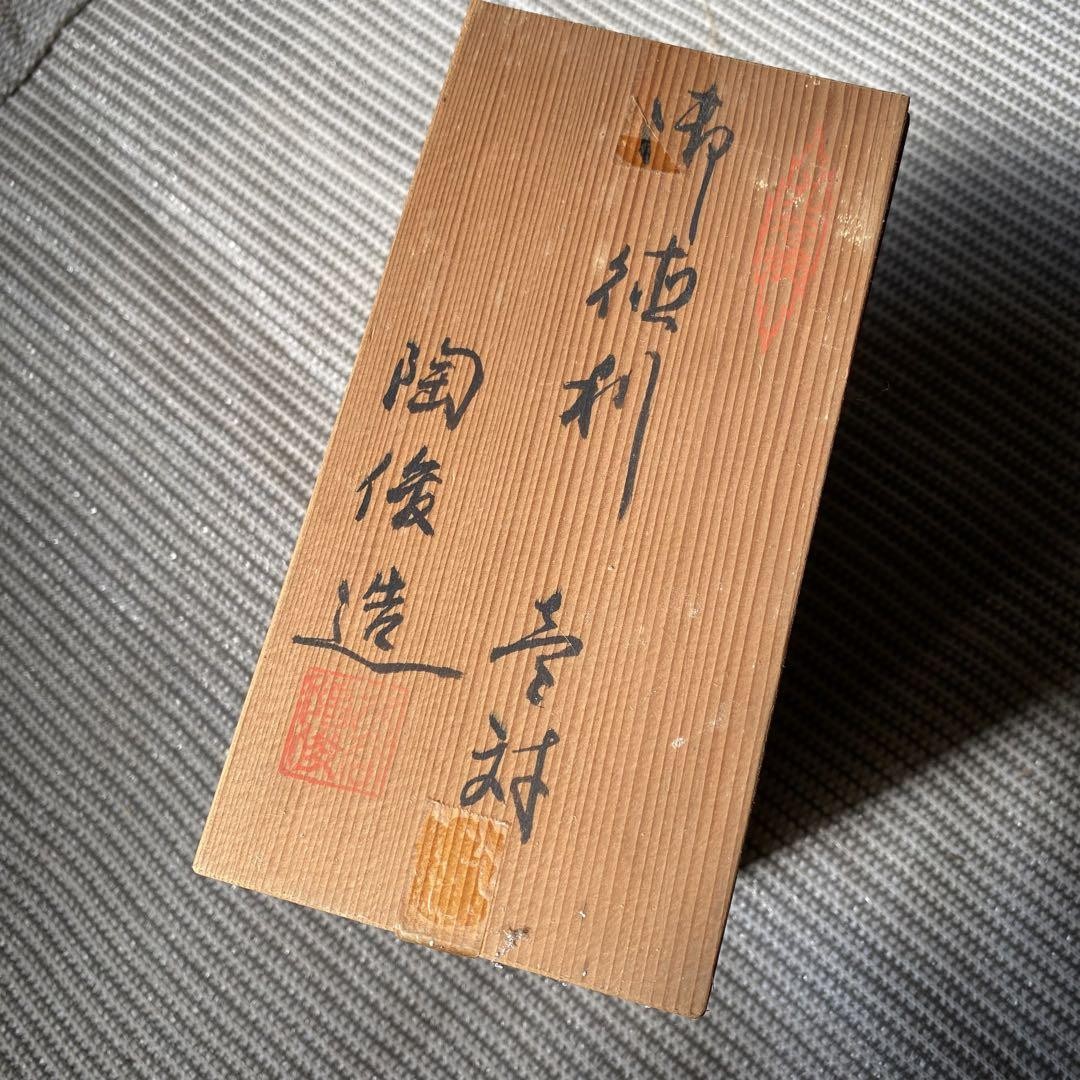 御徳利 壱対
陶俊造